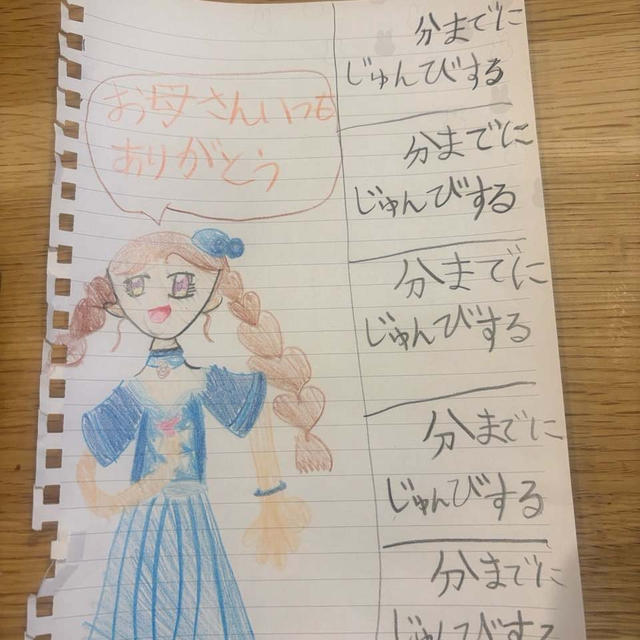 お母さんいつも
ありがとう
分までに
じゅんびする
分までに
じゅんびする
分までに
じゅんびする
分までに
じゅんびする
分までに
じゅんびする